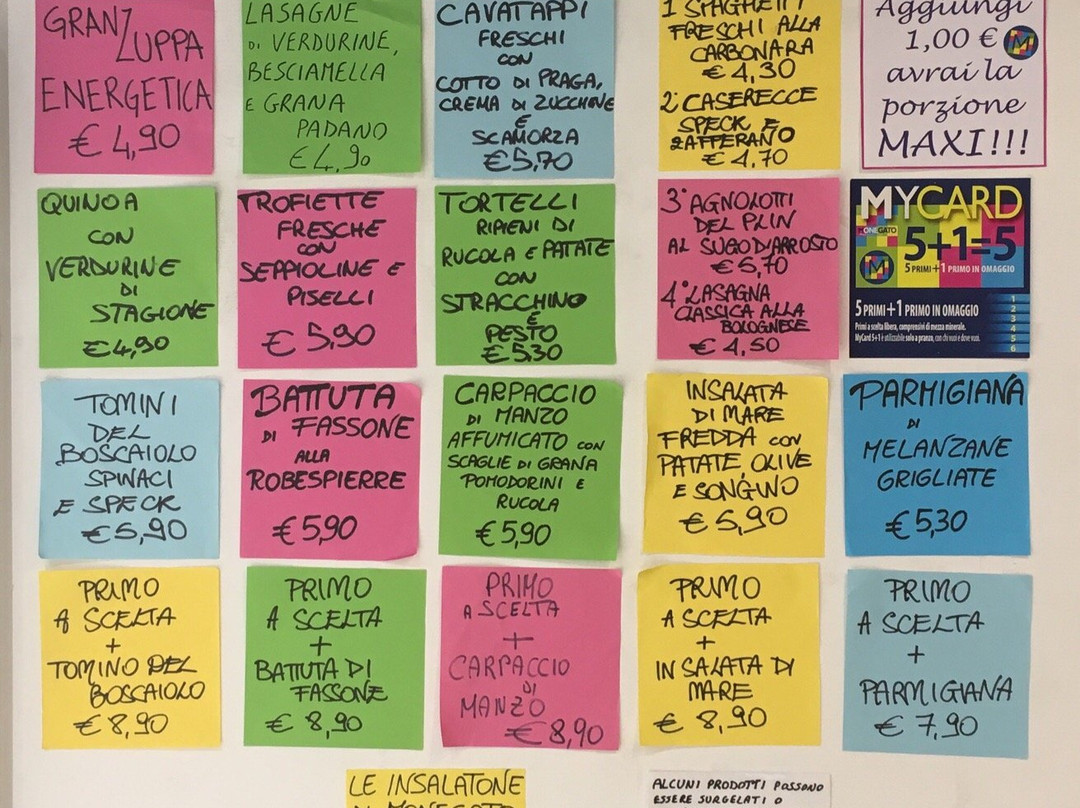 GRAN
ZUPPA
ENERGETICA
€ 4,90
LASAGNE
DI VERDURINE,
BESCIAMELLA
E GRANA
PADANO
€ 4,90
CAVATAPPI
FRESCHI
CON
COTTO DI PRAGA,
CREMA DI ZUCCHINE
E
SCAMORZA
€ 5,70
1° SPAGHETTI
FRESCHI ALLA
CARBONARA
€ 4,30
2° CASERECCE
SPECK E
ZAFFERANO
€ 4,70
Aggiungi
1,00 € M
avrai la
porzione
MAXI!!!
QUINOA
CON
VERDURINE
DI
STAGIONE
€ 4,90
TROFIETTE
FRESCHE
CON
SEPPIOLINE E
PISELLI
€ 5,90
TORTELLI
RIPIENI DI
RUCOLA E PATATE
CON
STRACCHINO
E
PESTO
€ 5,30
3° AGNOLOTTI
DEL PLIN
AL SUGO D'ARROSTO
€ 5,70
4° LASAGNA
CLASSICA ALLA
BOLOGNESE
€ 4,50
MYCARD
5+1=5
M
5 PRIMI+1 PRIMO IN OMAGGIO
5 PRIMI+1 PRIMO IN OMAGGIO
Primi a scelta libera, comprensivi di mezza minerale.
MyCard 5+1 è utilizzabile solo a pranzo, con chi vuoi e dove vuoi.
1
2
3
4
5
6
TOMINI
DEL
BOSCAIOLO
SPINACI
E SPECK
€ 5,90
BATTUTA
DI FASSONE
ALLA
ROBESPIERRE
€ 5,90
CARPACCIO
DI MANZO
AFFUMICATO CON
SCAGLIE DI GRANA
POMODORINI E
RUCOLA
€ 5,90
INSALATA
DI MARE
FREDDA CON
PATATE, OLIVE
E SONGINO
€ 5,90
PARMIGIANA
DI
MELANZANE
GRIGLIATE
€ 5,30
PRIMO
A SCELTA
+
TOMINO DEL
BOSCAIOLO
€ 8,90
PRIMO
A SCELTA
+
BATTUTA DI
FASSONE
€ 8,90
PRIMO
A SCELTA
+
CARPACCIO
DI
MANZO
€ 8,90
PRIMO
A SCELTA
+
INSALATA DI
MARE
€ 8,90
PRIMO
A SCELTA
+
PARMIGIANA
€ 7,90
LE INSALATONE
DI MONEGATO
ALCUNI PRODOTTI POSSONO
ESSERE SURGELATI O